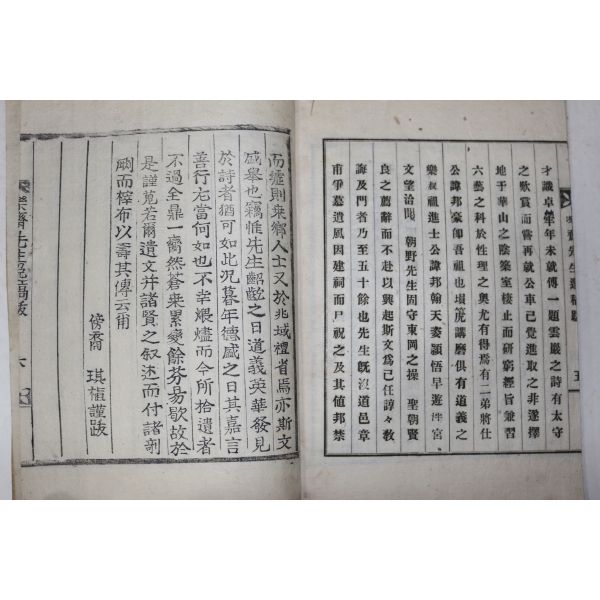 才識卓犖年未就傅一題雲巖之詩有太守
之歎賞而嘗再就公車已覺進取之非遂擇
地于華山之陰築室棲止而硏窮經旨兼習
六藝之科於性理之奧尤有得焉有二弟將仕
公諱邦豪卽吾祖也塤箎講磨俱有道義之
樂 祖進士公諱邦翰天姿穎悟早遊泮宮
文望洽聞 朝野先生固守東岡之操 聖朝賢
良之薦辭而不赴以興起斯文爲已任諄々敎
誨及門者乃至五十餘也先生旣沒道邑章
甫爭慕遺風因建祠而尸祝之及其値邦禁
而墟則來鄕人士又於兆域禋省焉亦斯文
盛擧也竊惟先生齠齔之日道義英華發見
於詩者猶可如此况暮年德盛之日其嘉言
善行尤當何如也不幸煨燼而今所拾遺者
不過全鼎一臠然蒼桑累變餘芬易歇故於
是謹蒐若爾遺文幷諸賢之叙述而付諸剞
劂而榟布以壽其傳云甭
傍裔 琪 謹跋
樂齋先生 稿跋
六